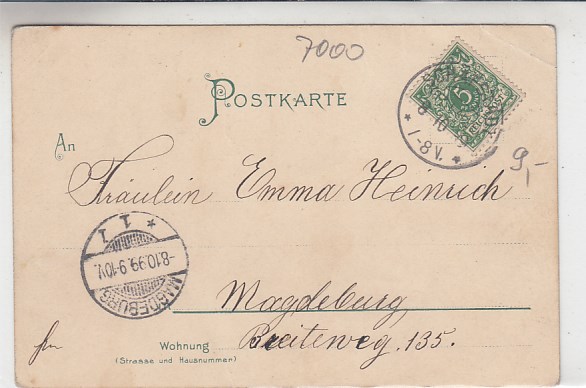 7000
POSTKARTE
5
REICHSPOST
8 10
* 1-8V. *
9,-
An
Fräulein Emma Heinrich
* 1 1
-8.10.99.9-10V.
MAGDEBURG
Magdeburg
Wohnung Breiteweg. 135.
(Strasse und Hausnummer)